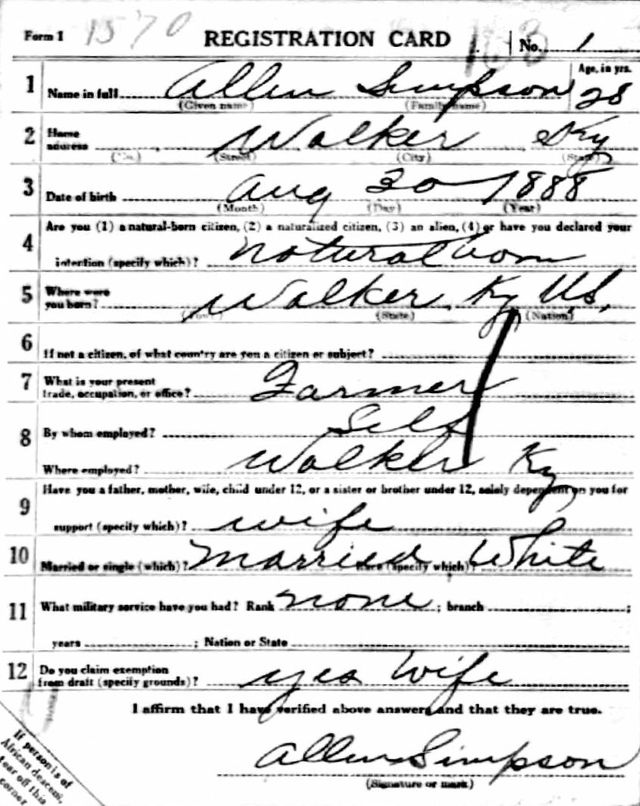 Form 1 1570 REGISTRATION CARD 163 No. 1
1 Name in full Allen Simpson Age, in yrs. 28
(Given name) (Family name)
2 Home address Walker Ky
(No.) (Street) (City) (State)
3 Date of birth Aug 30 1888
(Month) (Day) (Year)
4 Are you (1) a natural-born citizen, (2) a naturalized citizen, (3) an alien, (4) or have you declared your
intention (specify which)? natural born
5 Where were you born? Walker Ky US,
(Town) (State) (Nation)
6 If not a citizen, of what country are you a citizen or subject?
7 What is your present trade, occupation, or office? Farmer
8 By whom employed? Self
Where employed? Walker Ky
9 Have you a father, mother, wife, child under 12, or a sister or brother under 12, solely dependent on you for
support (specify which)? wife
10 Married or single (which)? married Race (specify which)? White
11 What military service have you had? Rank none ; branch ;
years ; Nation or State
12 Do you claim exemption from draft (specify grounds)? yes wife
I affirm that I have verified above answers and that they are true.
Allen Simpson
(Signature or mark)
If person is of
African descent,
tear off this
corner